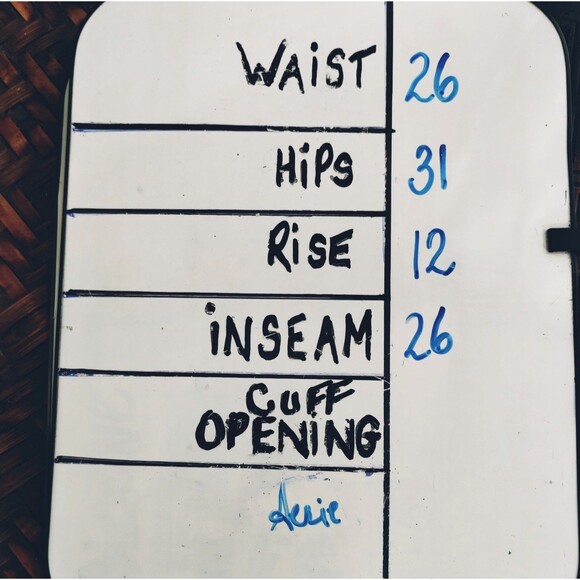 WAIST 26
HIPS 31
RISE 12
INSEAM 26
CUFF
OPENING
Aerie